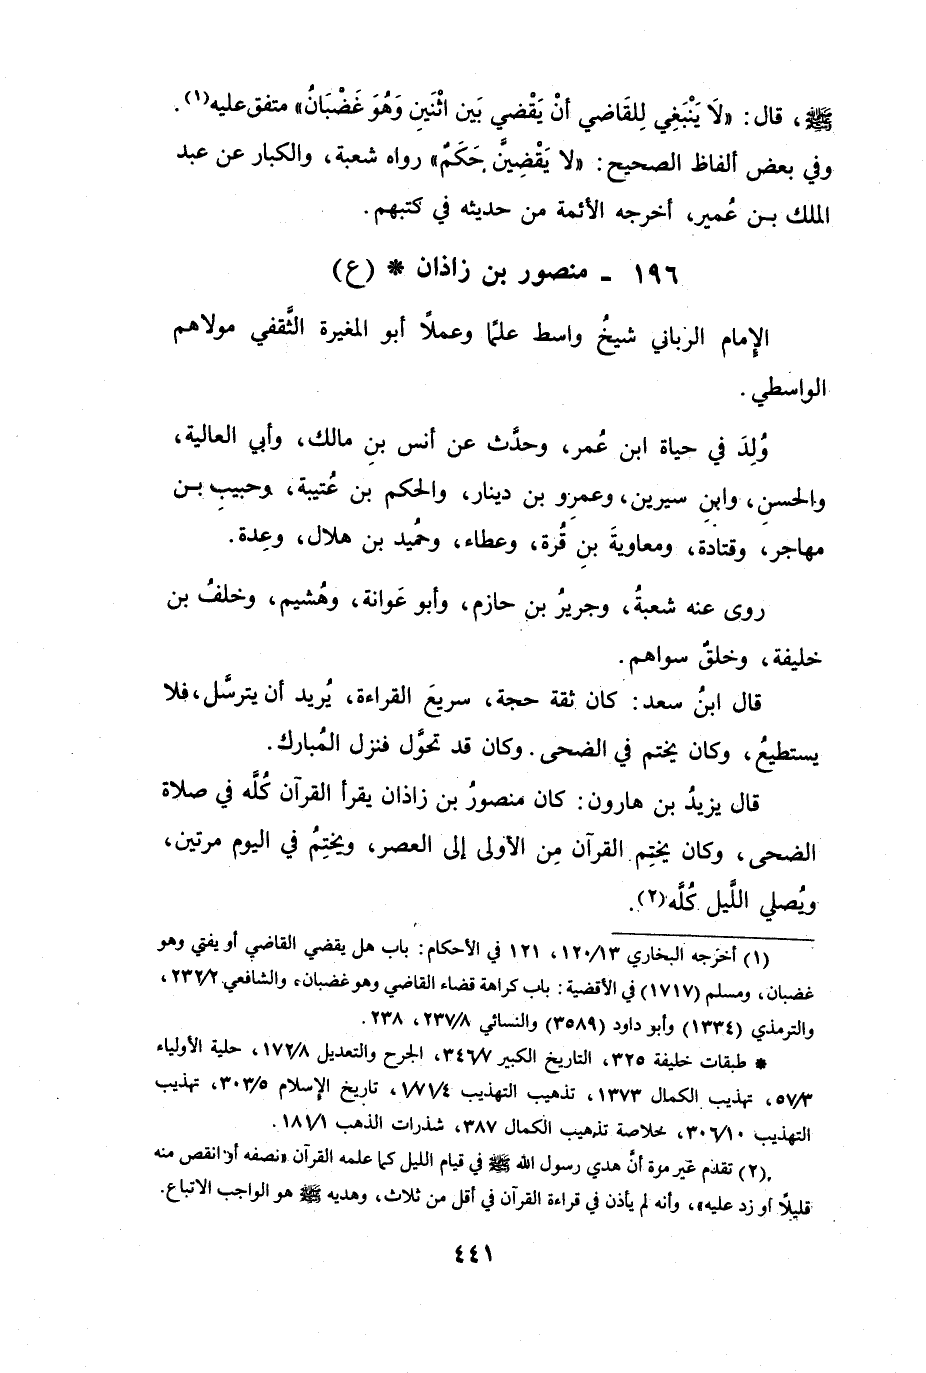 ﷺ، قال: «لَا يَنْبَغِي لِلقَاضي أنْ يَقْضي بَين اثْنَينِ وَهُوَ غَضْبَانُ» متفق عليه(١).
وفي بعض ألفاظ الصحيح: «لا يَقْضِينَّ حَكَمٌ» رواه شعبة، والكبار عن عبد
الملك بـن عُمير، أخرجه الأئمة من حديثه في كتبهم.
١٩٦ ـ منصور بن زاذان * (ع)
الإمام الرباني شيخُ واسط علمًا وعملًا أبو المغيرة الثَّقفي مولاهم
الواسطي.
وُلِدَ في حياة ابن عُمر، وحدَّث عن أنس بنِ مالك، وأبي العالية،
والحسنِ، وابنِ سيرين، وعمرِو بن دينار، والحكم بن عُتيبة، وحبيبِ بـن
مهاجر، وقتادة، ومعاويةَ بنِ قُرة، وعطاء، وحُميد بن هلال، وعِدة.
روى عنه شعبةُ، وجريرُ بن حازم، وأبو عَوانة، وهُشيم، وخلفُ بن
خليفة، وخلقٌ سواهم.
قال ابنُ سعد: كان ثقة حجة، سريعَ القراءة، يُريد أن يترسَّل، فلا
يستطيعُ، وكان يختم في الضحى. وكان قد تحوَّل فنزل المُبارك.
قال يزيدُ بن هارون: كان منصورُ بن زاذان يقرأ القرآن كُلَّه في صلاة
الضحى، وكان يختِم القرآن مِن الأولى إلى العصر، ويختِمُ في اليوم مرتين،
ويُصلي اللَّيل كُلَّه(٢).
(١) أخرَجه البخاري ١٢٠/١٣، ١٢١ في الأحكام: باب هل يقضي القاضي أو يفتي وهو
غضبان، ومسلم (١٧١٧) في الأقضية: باب كراهة قضاء القاضي وهو غضبان، والشافعي ٢٣٢/٢،
والترمذي (١٣٣٤) وأبو داود (٣٥٨٩) والنسائي ٢٣٧/٨، ٢٣٨.
* طبقات خليفة ٣٢٥، التاريخ الكبير ٣٤٦/٧، الجرح والتعديل ١٧٢/٨، حلية الأولياء
٥٧/٣، تهذيب الكمال ١٣٧٣، تذهيب التهذيب ١/٧١/٤، تاريخ الإسلام ٣٠٣/٥، تهذيب
التهذيب ٣٠٦/١٠، خلاصة تذهيب الكمال ٣٨٧، شذرات الذهب ١٨١/١.
(٢) تقدم غير مرة أنَّ هدي رسول الله ﷺ في قيام الليل كما علمه القرآن «نصفه أو انقص منه
قليلًا أو زد عليه»، وأنه لم يأذن في قراءة القرآن في أقل من ثلاث، وهديه ﷺ هو الواجب الاتباع.
٤٤١